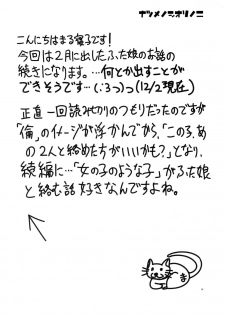 ナツメノシオリノニ
こんにちはまる寝子です！
今回は2月に出したふた娘のお話の
続きになります。…何とか出すことが
できそうです…(:3っ)っ(12/2現在)
正直一回読み切りのつもりだったのですが
「倫」のイメージが浮かんでから、「この子、あ
の2人と絡めた方がいいかも？」となり、
続編に…「女の子のような子」がふた娘
と絡む話好きなんですよね。
ま